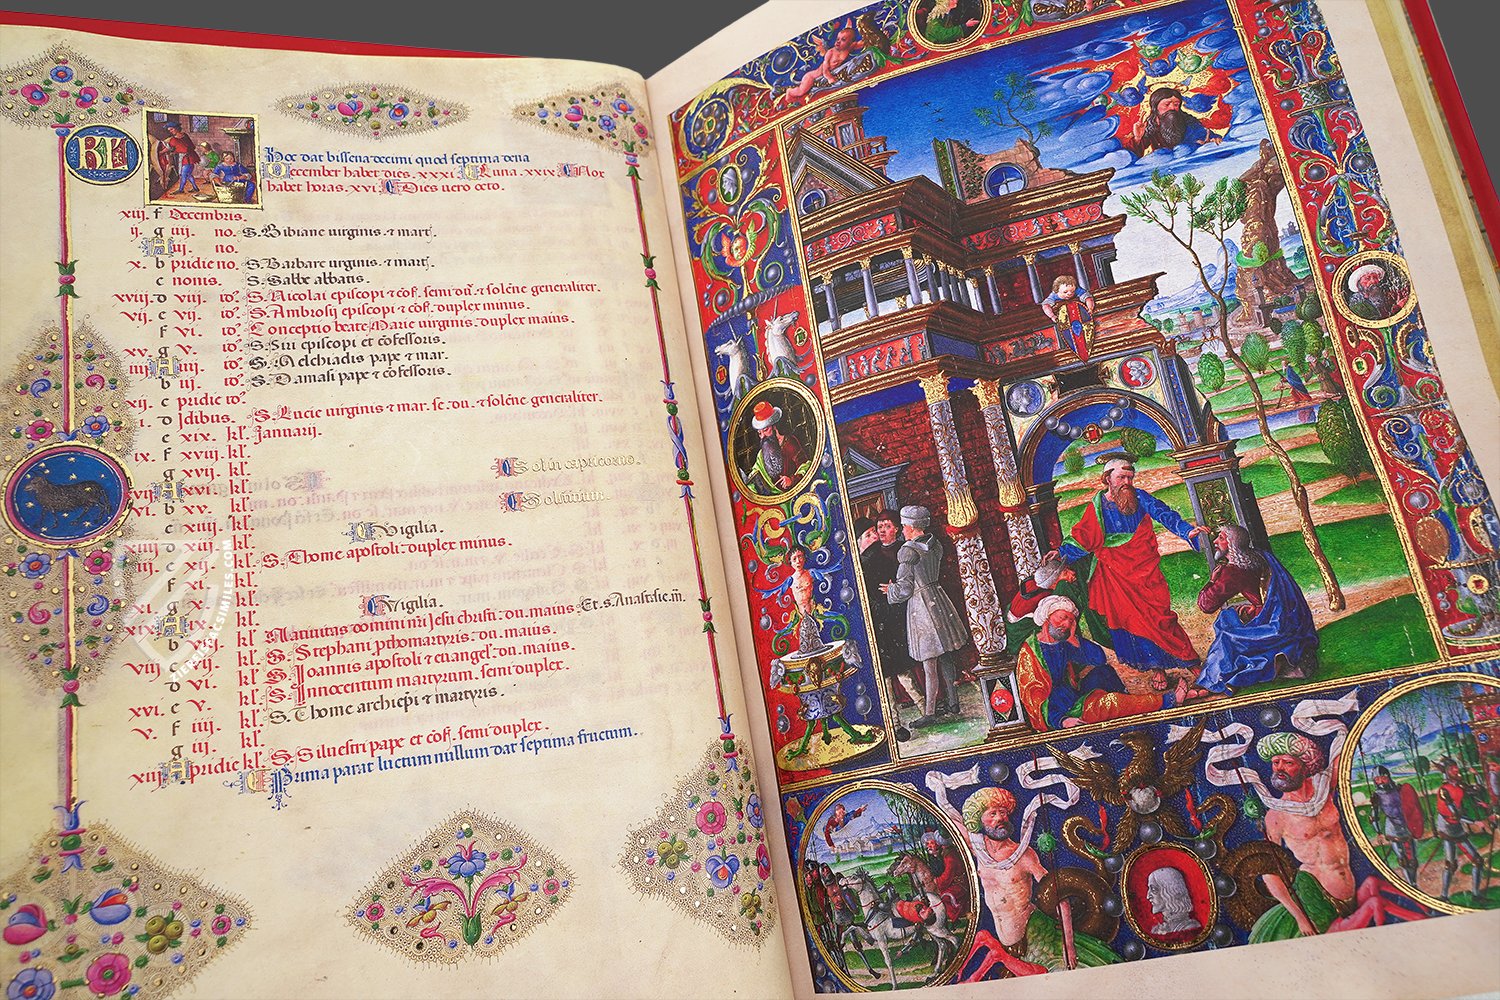 KL
Hoc dat bissena decimi quod septima dena
December habet dies. xxxi Luna. xxix Nox
habet horas. xvi. Dies uero octo.
xiij. f Decembris.
ij. g iiij. no. S. Bibiane uirginis. ⁊ martj.
A iij. no.
x. b pridie no. S. Barbare uirginis. ⁊ martj.
c nonis. S. Sabbe abbatis.
xviij. d viij. id'. S. Nicolai episcopi ⁊ cōf. semi dū. ⁊ solēne generaliter.
vij. e vij. id'. S. Ambrosij episcopi ⁊ cōf. duplex minus.
f vi. id'. Conceptio beate Marie uirginis. duplex maius.
xv. g v. id'. S. Siri episcopi et cōfessoris.
iiij. A iiij. id'. S. Melchiadis pape ⁊ mar.
b iij. id'. S. Damasi pape ⁊ cōfessoris.
xij. c pridie id'.
i. d Idibus. S. Lucie uirginis ⁊ mar. se. du. ⁊ solēne generaliter.
e xix. kl. Januarij.
ix. f xviij. kl.
g xvij. kl. Sol in capricorno.
vij. A xvi. kl.
vi. b xv. kl. Solstitium.
c xiiij. kl.
xiiij. d xiij. kl. Vigilia.
iij. e xij. kl. S. Thome apostoli. duplex minus.
f xi. kl.
xi. g x. kl.
xix. A ix. kl. Vigilia.
b viij. kl. Natiuitas domini nr̄i Jesu christi. du. maius. Et. s. Anastasie. m̄.
viij. c vij. kl. S. Stephani ꝓthomartyris. du. maius.
d vi. kl. S. Joannis apostoli ⁊ euangel'. du. maius.
xvi. e v. kl. S. Innocentum martyrum. semi duplex.
v. f iiij. kl. S. Thome archiepi ⁊ martyris.
g iij. kl.
xiij. A pridie kl. S. Siluestri pape et cōf. semi duplex.
Pruma parat luctum nullum dat septima fructum.
FACSIMILES.COM